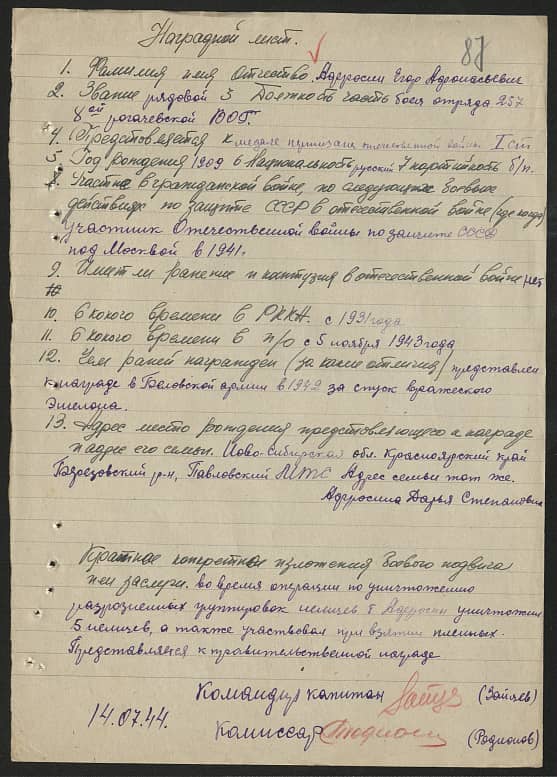 Наградной лист.
87
1. Фамилия имя Отчество. Адеросин Егор Афонасьевич
2. Звание рядовой 3 Должность часть боец отряда 257
8ой рогачевской ВОГ.
4. Представляется к медале партизана отечественной войны I ст
5. Год рождения 1909 6 Национальность русский 7 партийность б/п.
8. Участие в гражданской войне, по следующие боевых
действиях по защите СССР в отечественной войне (где когда)
участник Отечественной войны по защите СССР
под Москвой в 1941.
9. Имет ли ранение и контузия в отечественной войне нет
10
10. С какого времени в РККА. с 1931 года
11. С какого времени в п/о с 5 ноября 1943 года
12. Чем раней награжден (за какие отличия) представлен
к награде в Беловской армии в 1942 за спуск вражеского
Эшелона.
13. Адрес место рождения представляющего к награде
и адрес его семьи. Ново-Сибирская обл. Красноярский край
Березовский р-н, Павловский МТС Адрес семьи тот же.
Адеросина Дарья Степановна
Краткое конкретное изложения боевого подвига
или заслуги. во время операции по уничтожению
разрозненых группировок немцев т Адеросин уничтожил
5 немцев, а также участвовал при взятии пленных.
Представляется к правительственной награде
Командир капитан Зайцев (Зайцев)
14.07.44.
Комиссар Родионов (Родионов)